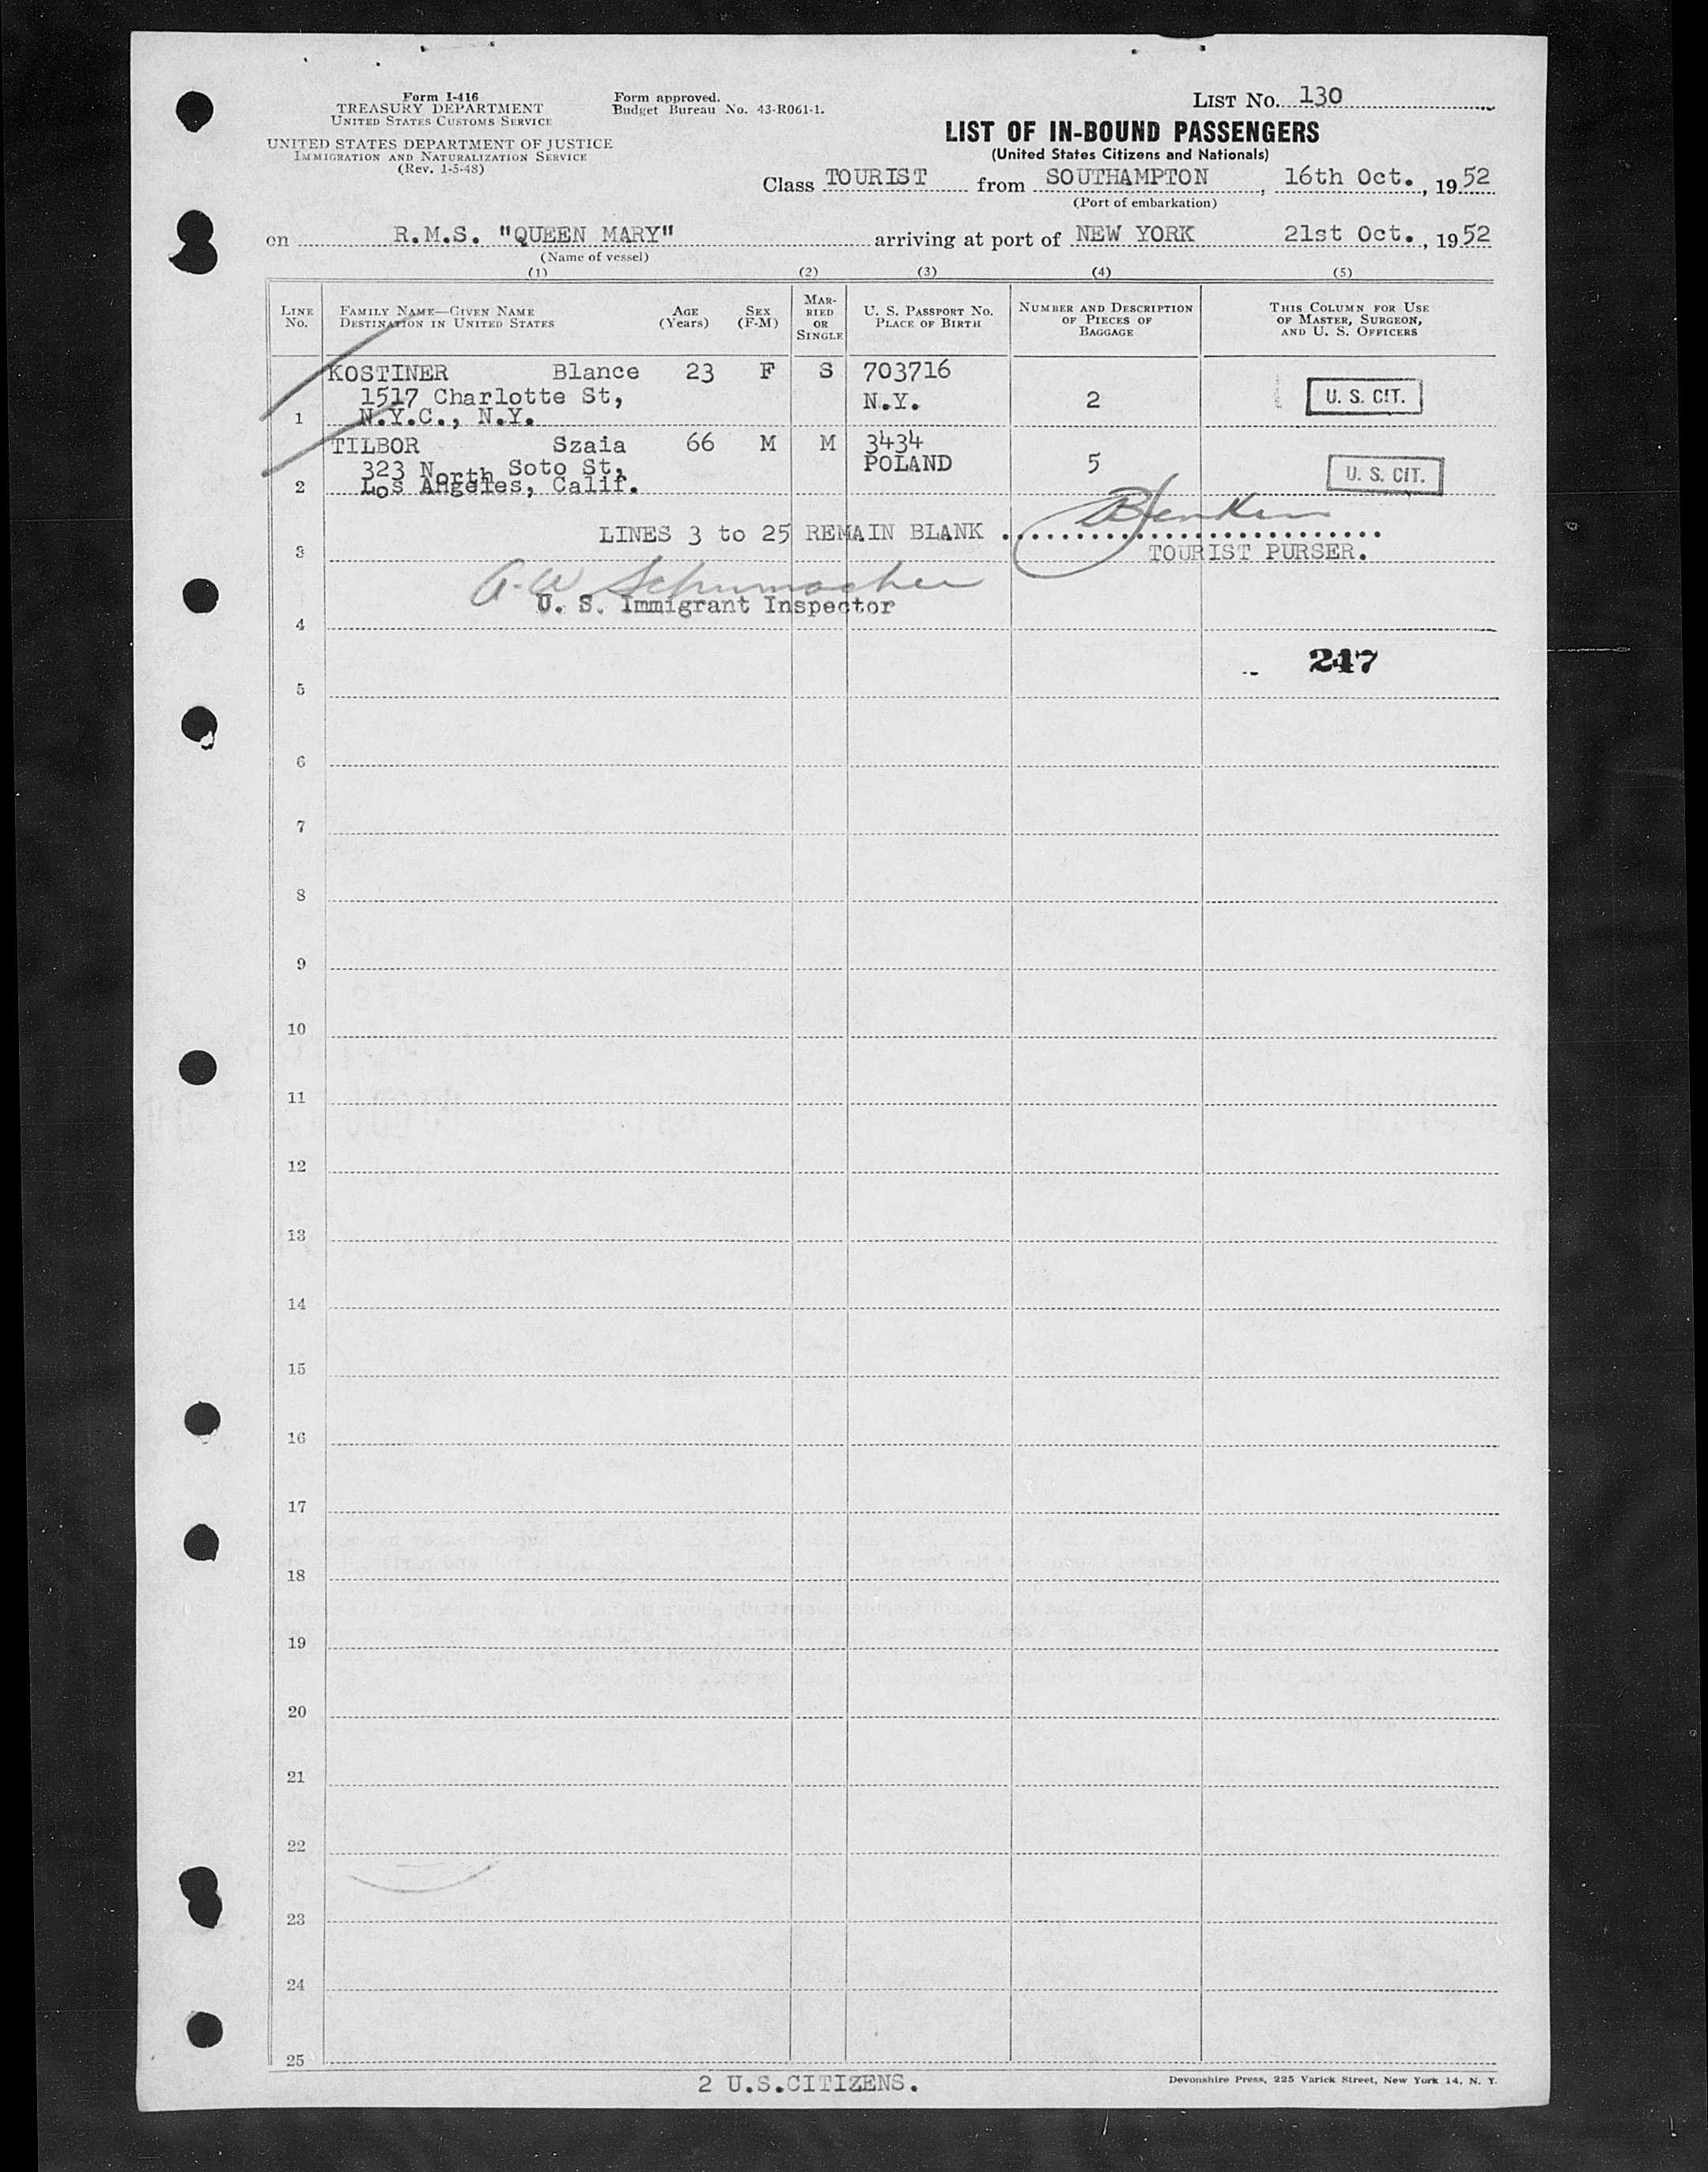 Form I-416
TREASURY DEPARTMENT
UNITED STATES CUSTOMS SERVICE
UNITED STATES DEPARTMENT OF JUSTICE
IMMIGRATION AND NATURALIZATION SERVICE
(Rev. 1-5-48)
Form approved.
Budget Bureau No. 43-R061-1.
LIST No. 130
LIST OF IN-BOUND PASSENGERS
(United States Citizens and Nationals)
Class TOURIST from SOUTHAMPTON, 16th Oct., 1952
(Port of embarkation)
on R.M.S. "QUEEN MARY" arriving at port of NEW YORK 21st Oct., 1952
(Name of vessel)
(1) (2) (3) (4) (5)
LINE No. FAMILY NAME—GIVEN NAME DESTINATION IN UNITED STATES AGE (Years) SEX (F-M) MARRIED OR SINGLE U. S. PASSPORT No. PLACE OF BIRTH NUMBER AND DESCRIPTION OF PIECES OF BAGGAGE THIS COLUMN FOR USE OF MASTER, SURGEON, AND U. S. OFFICERS
KOSTINER Blance 23 F S 703716
1517 Charlotte St, N.Y. 2 U. S. CIT.
1 N.Y.C., N.Y.
TILBOR Szaia 66 M M 3434
323 North Soto St, POLAND 5 U. S. CIT.
2 Los Angeles, Calif.
LINES 3 to 25 REMAIN BLANK
3 TOURIST PURSER.
A. W. Schumacher
U. S. Immigrant Inspector
4
247
5
6
7
8
9
10
11
12
13
14
15
16
17
18
19
20
21
22
23
24
25
2 U.S.CITIZENS.
Devonshire Press, 225 Varick Street, New York 14, N. Y.